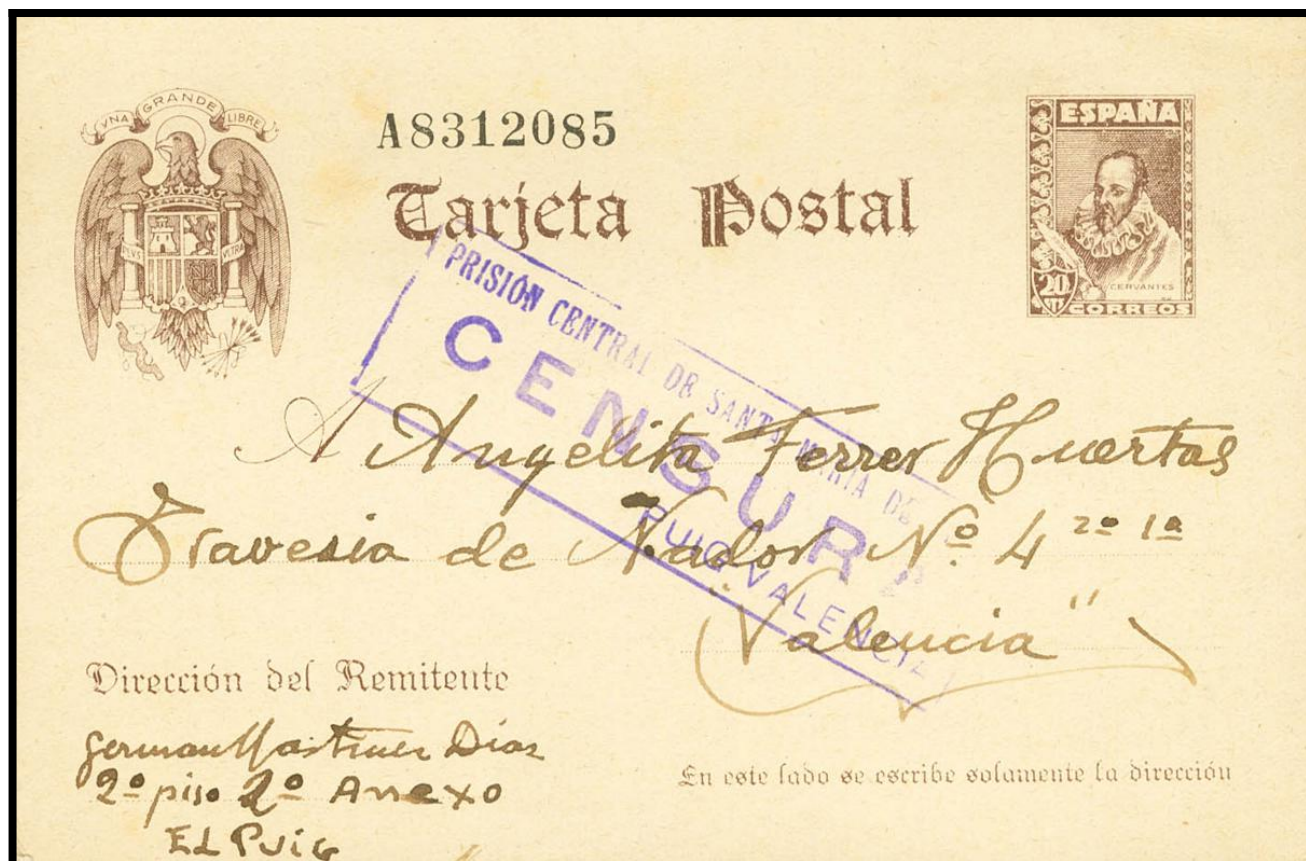 UNA GRANDE LIBRE
A8312085
ESPAÑA
Tarjeta Postal
PLUS ULTRA
20
CTS
CERVANTES
CORREOS
PRISIÓN CENTRAL DE SANTA MARIA DE
CENSURA
PUIG VALENCIA
A Angelita Ferrer Huertas
Travesia de Nador Nº 4 2º 1ª
"Valencia"
Dirección del Remitente
German Martinez Diaz
2º piso 2º Anexo
EL PUIG
En este lado se escribe solamente la dirección